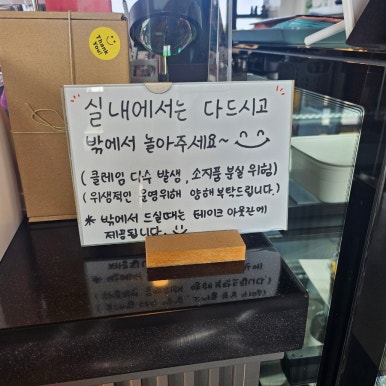 Thank you!
실내에서는 다드시고
밖에서 놀아주세요~
(클레임 다수 발생, 소지품 분실 위험)
(위생적인 운영위해 양해부탁드립니다.)
* 밖에서 드실때는 테이크 아웃잔에
제공됩니다.